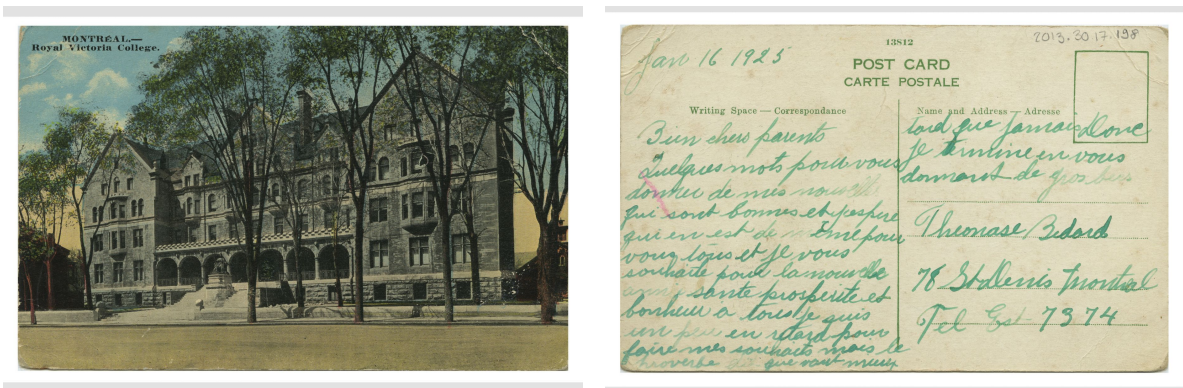 MONTRÉAL.—
Royal Victoria College.
2013.30.17.198
Jan 16 1925
13812
POST CARD
CARTE POSTALE
Writing Space — Correspondance
Name and Address — Adresse
Bien chers parents
Quelques mots pour vous
donner de mes nouvelle
qui sont bonnes et j'espere
qui en est de meme pour
vous tous et je vous
souhaite pour la nouvelle
sante prosperite et
bonheur a tous je suis
un peu en retard pour
faire mes souhaits mais le
proverbe que vaut mieux
tard que Jamais Donc
Je termine en vous
donnant de gros
Theonase Bedard
78 St Denis Montreal
Tel Est 7374